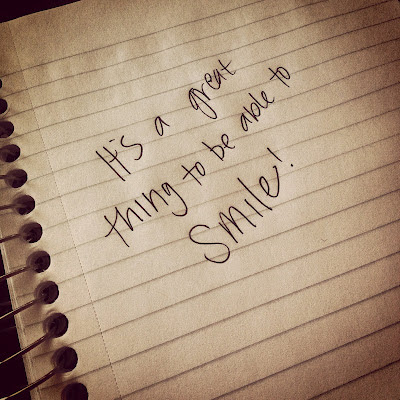 It's a great
thing to be able to
smile!